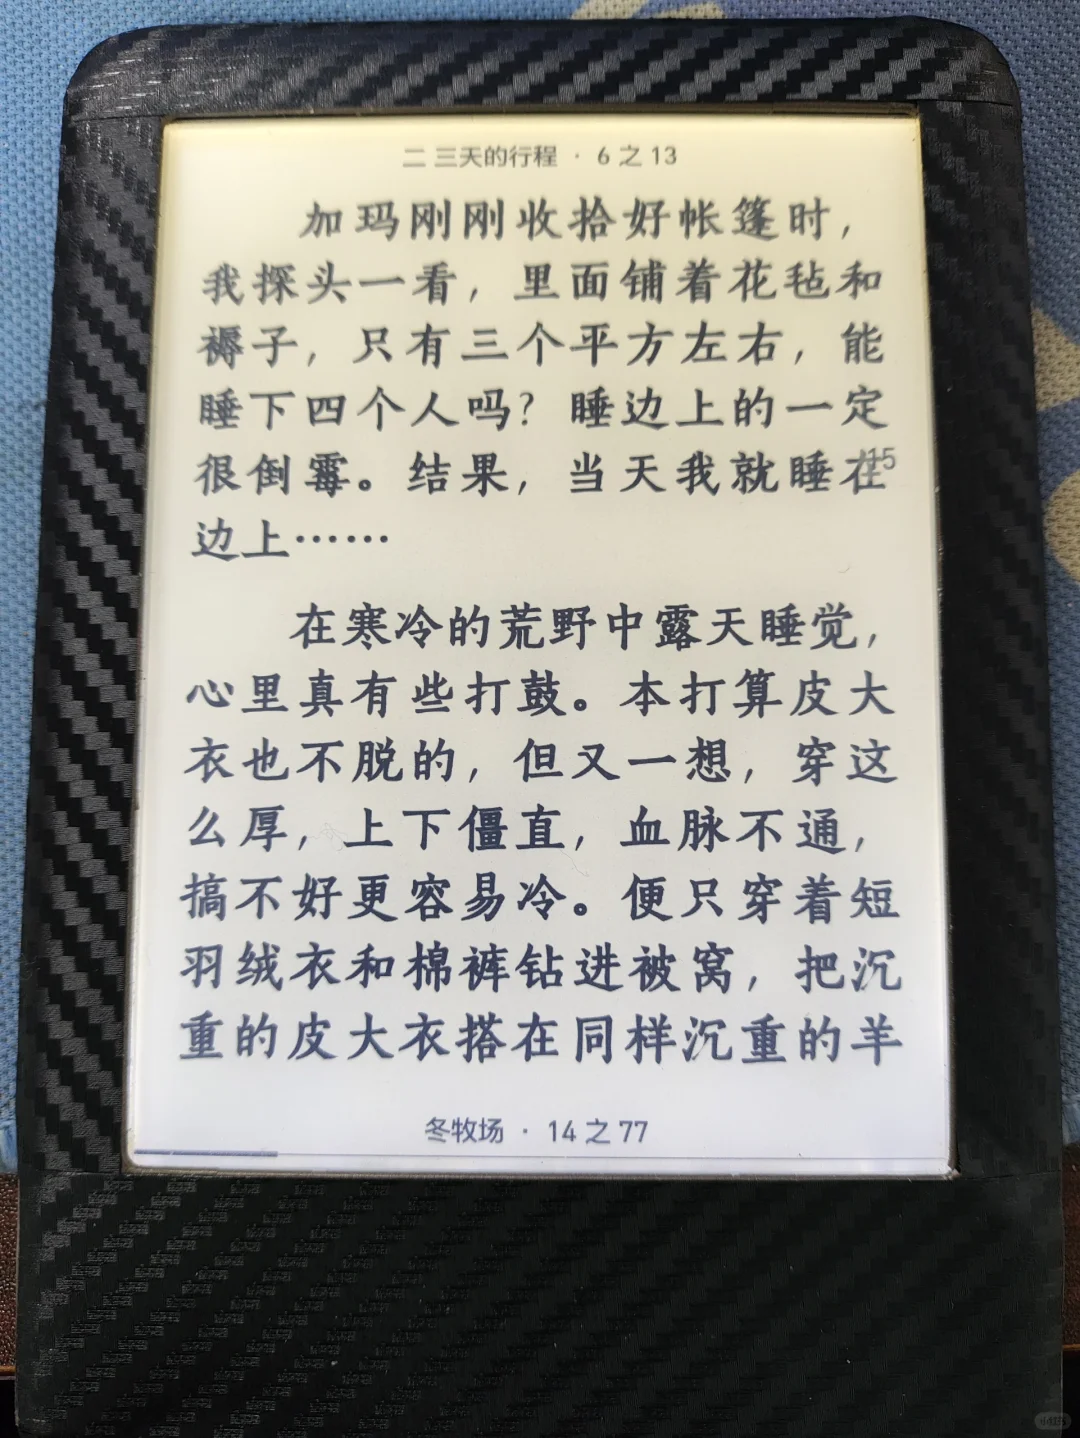 二 三天的行程 · 6 之 13
加玛刚刚收拾好帐篷时，
我探头一看，里面铺着花毡和
褥子，只有三个平方左右，能
睡下四个人吗？睡边上的一定
很倒霉。结果，当天我就睡在
15
边上……
在寒冷的荒野中露天睡觉，
心里真有些打鼓。本打算皮大
衣也不脱的，但又一想，穿这
么厚，上下僵直，血脉不通，
搞不好更容易冷。便只穿着短
羽绒衣和棉裤钻进被窝，把沉
重的皮大衣搭在同样沉重的羊
冬牧场 · 14 之 77